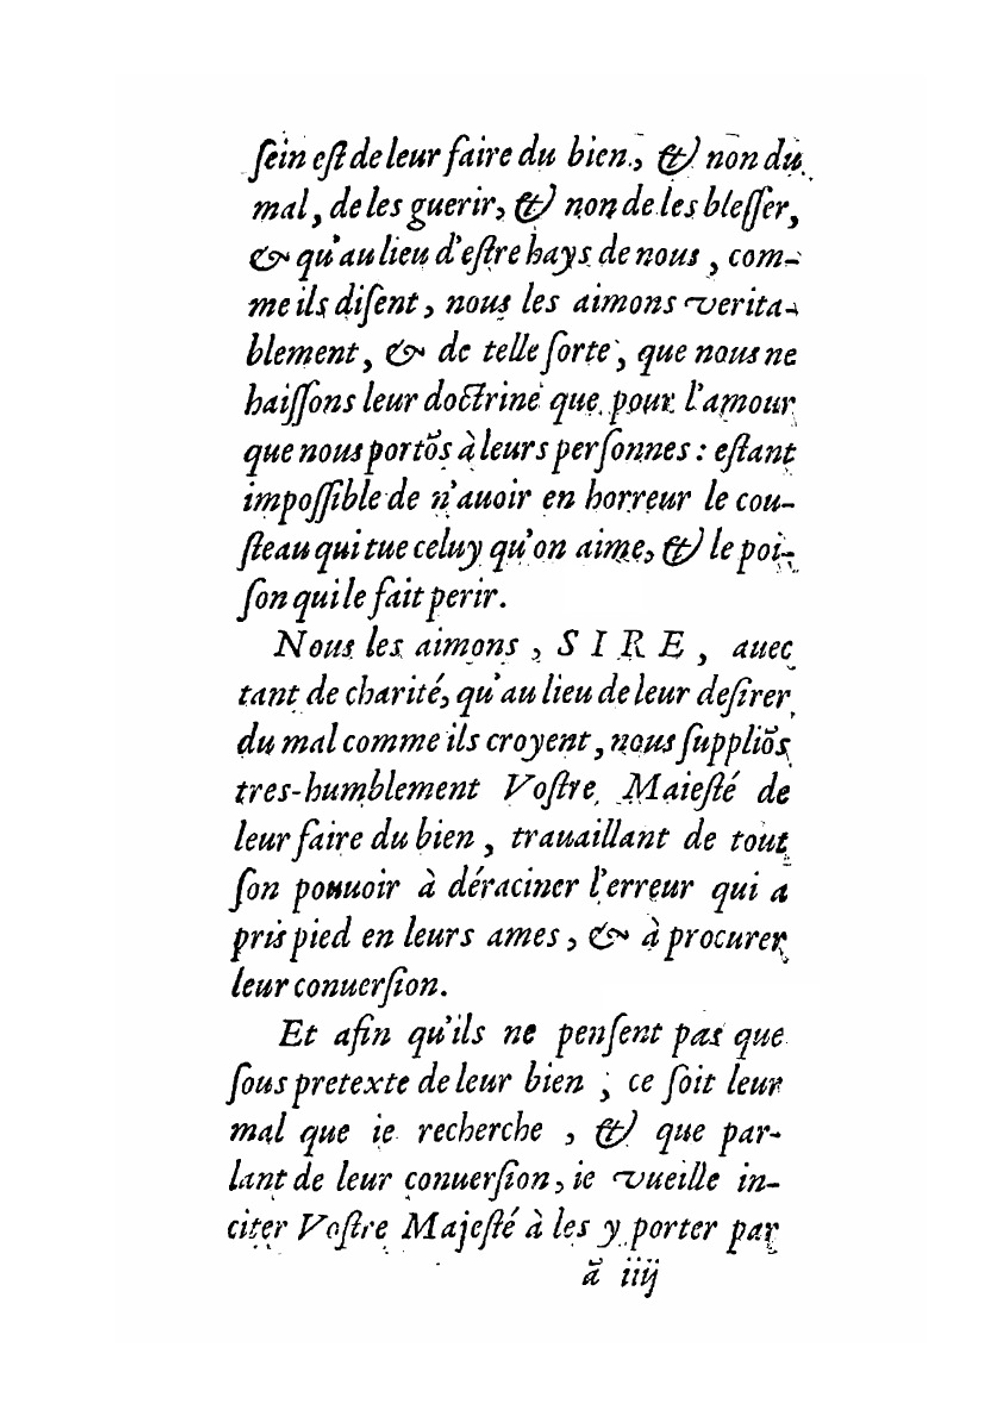 ſein eſt de leur faire du bien, & non du
mal, de les guerir, & non de les bleſſer,
& qu'au lieu d'eſtre hays de nous, com-
me ils diſent, nous les aimons verita-
blement, & de telle ſorte, que nous ne
haiſſons leur doctrine que pour l'amour
que nous portõs à leurs perſonnes : eſtant
impoſſible de n'auoir en horreur le cou-
ſteau qui tue celuy qu'on aime, & le poi-
ſon qui le fait perir.
Nous les aimons, SIRE, auec
tant de charité, qu'au lieu de leur deſirer
du mal comme ils croyent, nous ſuppliõs
tres-humblement Voſtre Maieſté de
leur faire du bien, trauaillant de tout
ſon pouuoir à déraciner l'erreur qui a
pris pied en leurs ames, & à procurer
leur conuerſion.
Et afin qu'ils ne penſent pas que
ſous pretexte de leur bien, ce ſoit leur
mal que ie recherche, & que par-
lant de leur conuerſion, ie vueille in-
citer Voſtre Majeſté à les y porter par
ã iiij